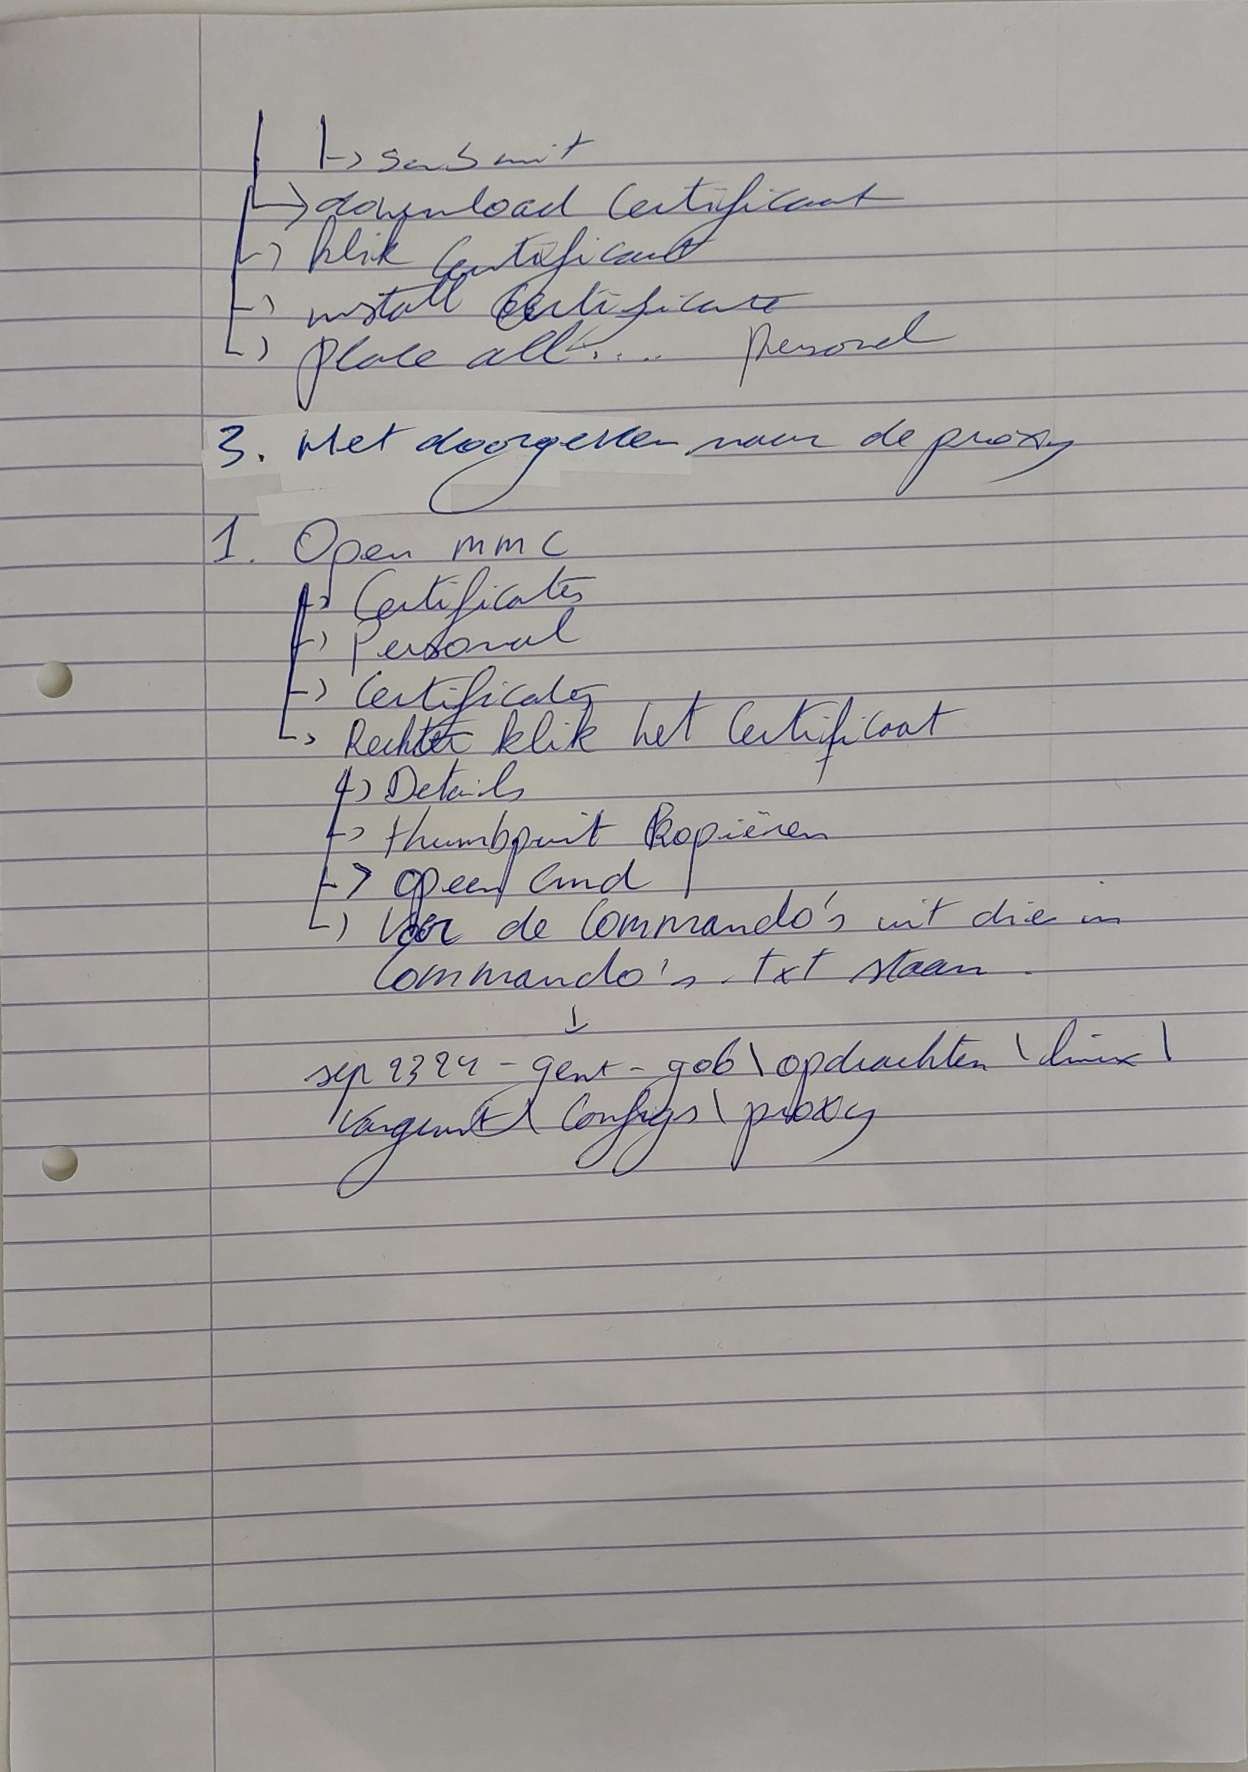 ↳ submit
→ download Certificaat
→ klik Certificaat
→ install Certificate
→ place all .... personal
3. Het doorgeven naar de proxy
1. Open mmc
→ Certificates
→ Personal
→ Certificates
→ Rechter klik het Certificaat
→ Details
→ thumbprint Kopiëren
→ open cmd
→ Voer de Commando's uit die in
Commando's.txt staan.
↓
sep2324-gent-g06\opdrachten\linux\
Vagrant\Configs\proxy